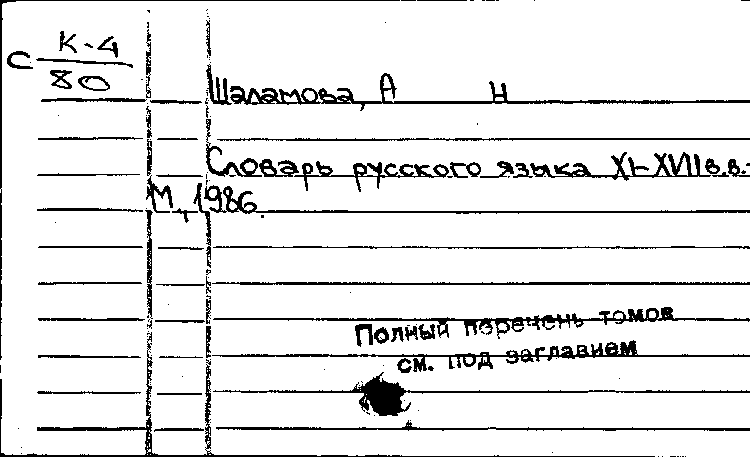 С К-4
80
Шаламова, А Н
Словарь русского языка XI-XVII в.в.-
М., 1986.
Полный перечень томов
см. под заглавием